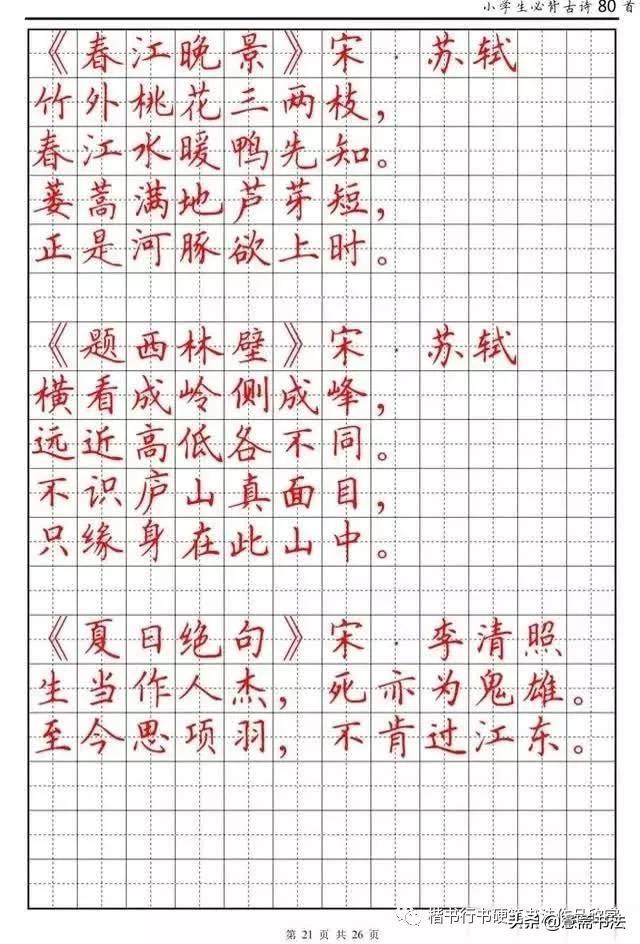 小学生必背古诗 80 首
《春江晚景》宋·苏轼
竹外桃花三两枝，
春江水暖鸭先知。
蒌蒿满地芦芽短，
正是河豚欲上时。
《题西林壁》宋·苏轼
横看成岭侧成峰，
远近高低各不同。
不识庐山真面目，
只缘身在此山中。
《夏日绝句》宋·李清照
生当作人杰，死亦为鬼雄。
至今思项羽，不肯过江东。
楷书行书硬笔书法作品欣赏
头条@慧斋书法
第 21 页 共 26 页